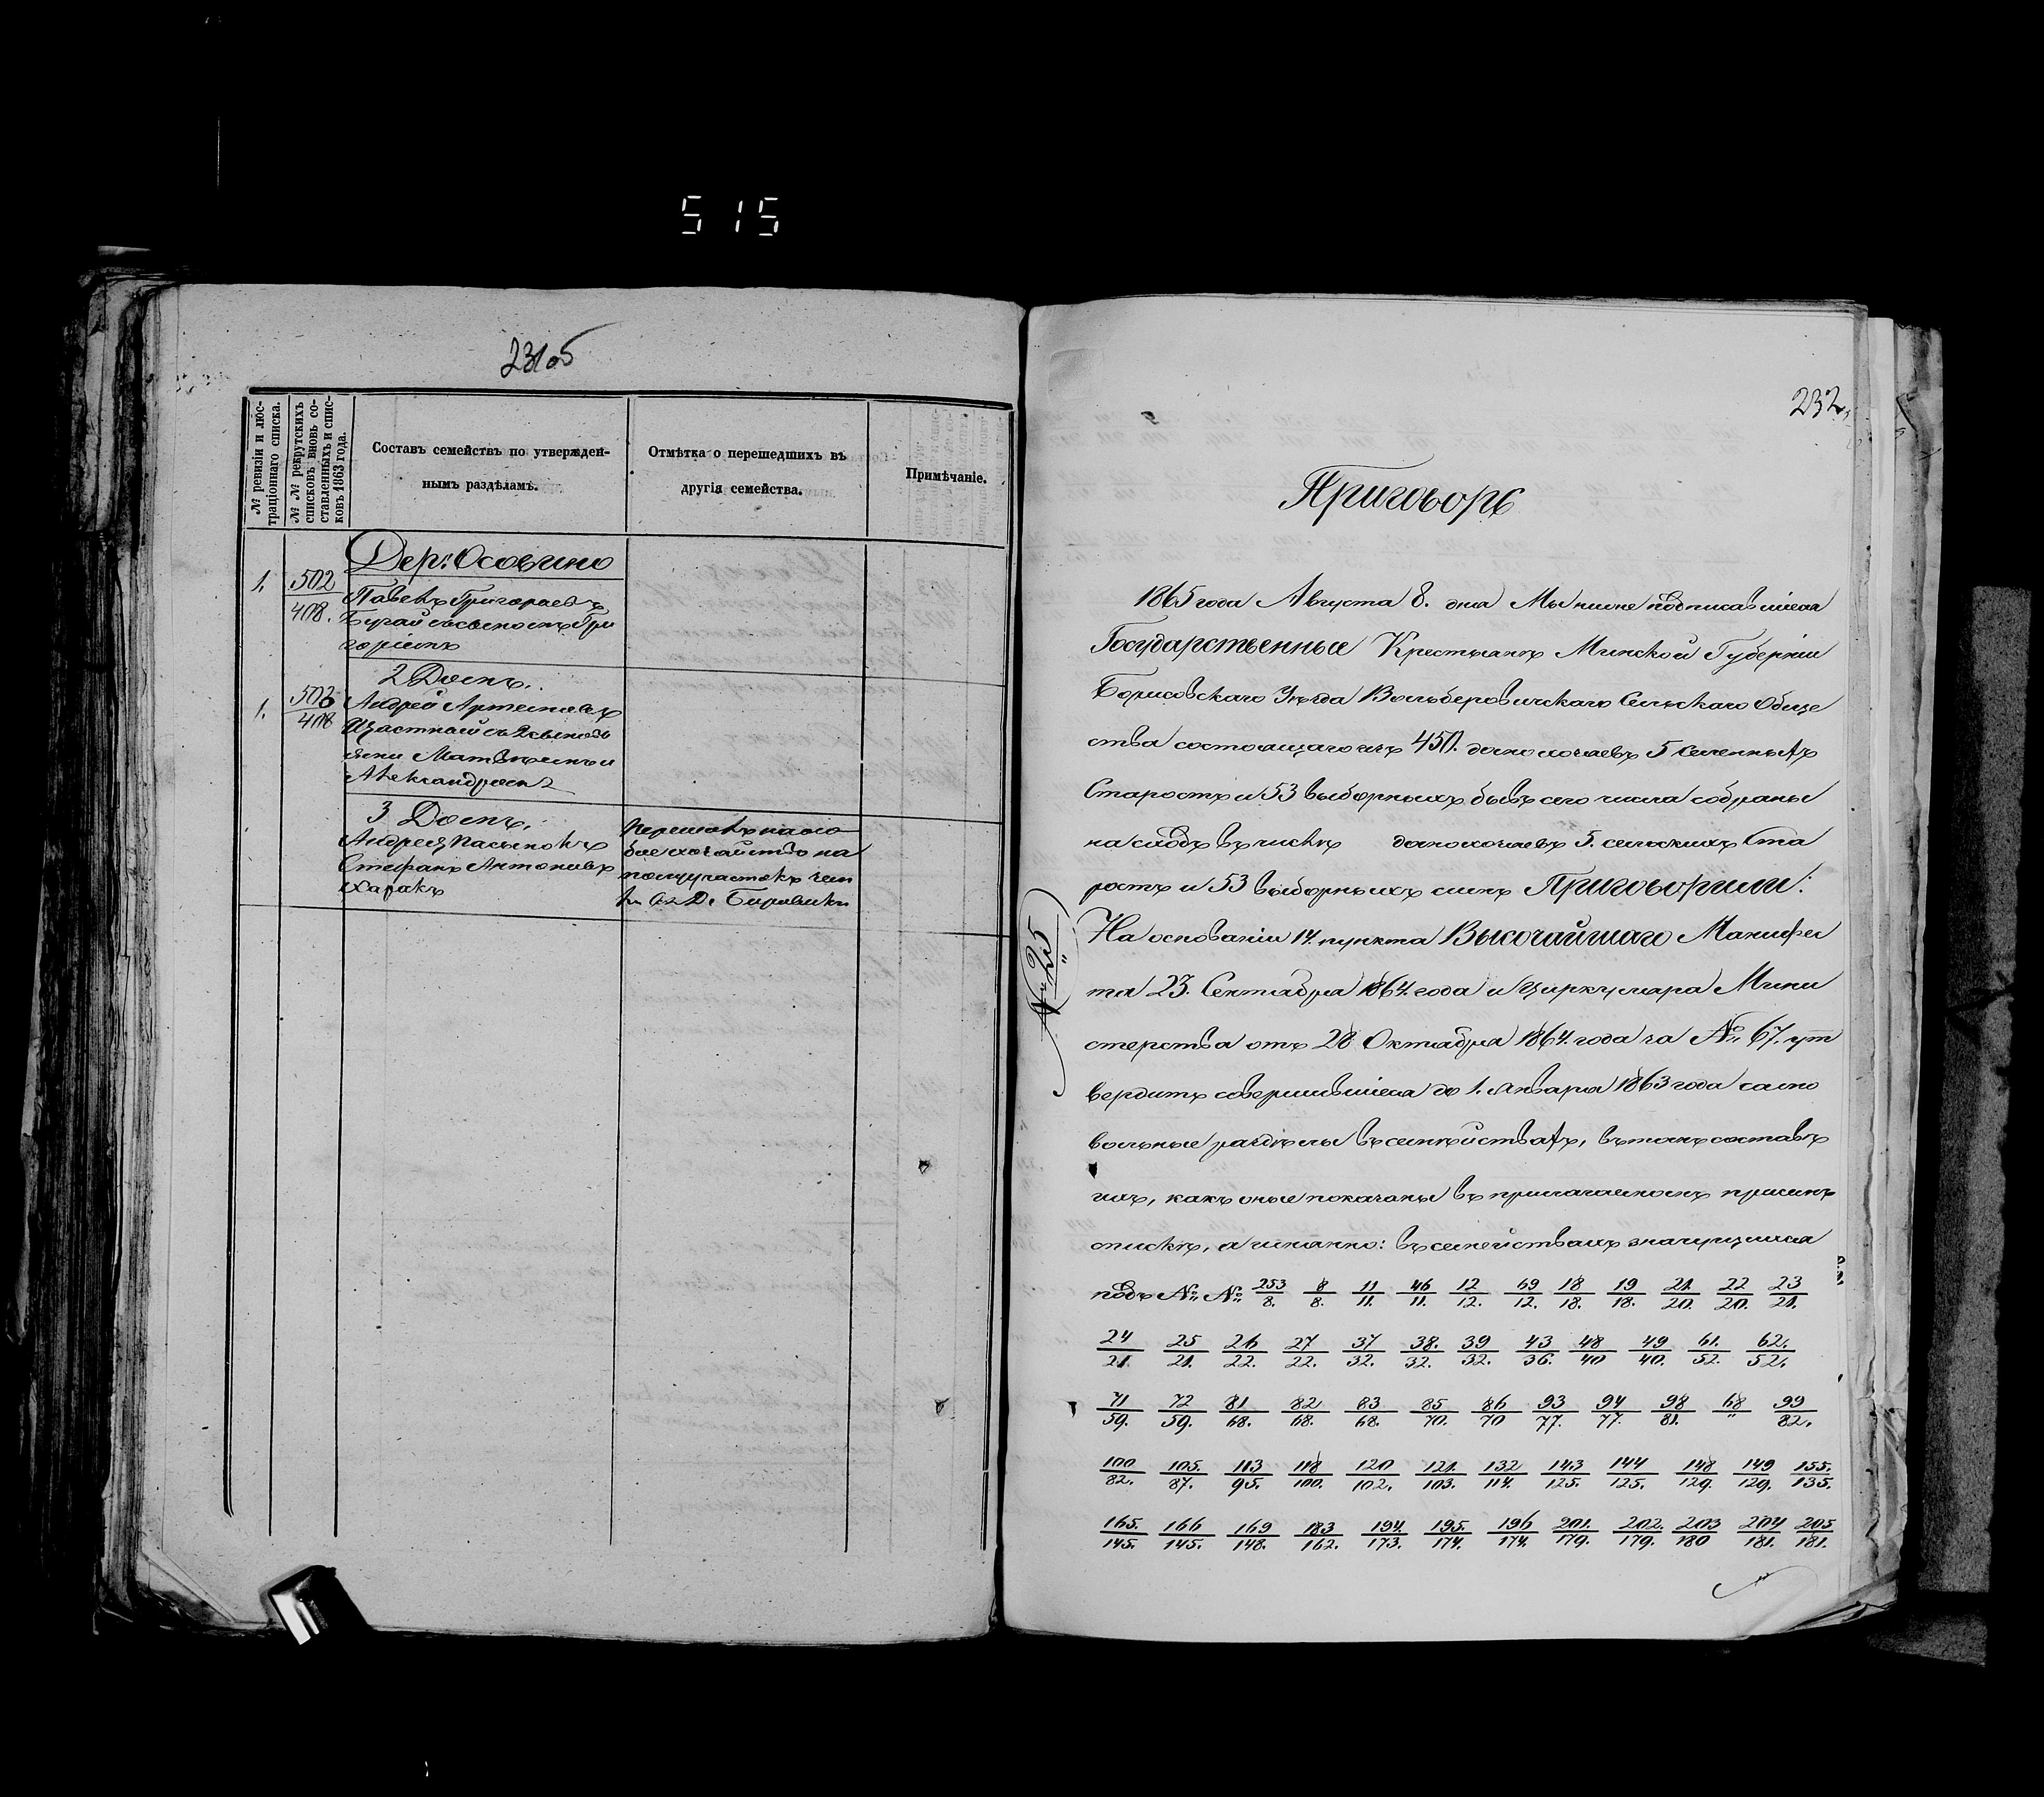 515
231об
№ ревизіи и люс-
траціоннаго списка.
№ № рекрутскихъ
списковъ вновь со-
ставленныхъ и спис-
ковъ 1863 года.
Составъ семействъ по утвержден-
нымъ раздѣламъ.
Отмѣтка о перешедшихъ въ
другія семейства.
Примѣчаніе.
Дер: Осовино
1. 502/408. Павелъ Григорьевъ
Бугай съ сыномъ Гри
горіемъ
2 Домъ.
1. 503/408 Андрей Артемьевъ
съ 2 сыновь
ями Матвѣемъ и
Александромъ
3 Домъ.
Андрея пасынокъ
Стефанъ Антоновъ
Харакъ
перешовъ на осо
бое хозяйство на
полууча­стокъ
въ Д. Боровики
232
Приговоръ
1865 года Августа 8. дня Мы ниже подписавшіеся
Государственные Крестьяне Минской Губерніи
Борисовскаго Уѣзда Вольберовичскаго Сельскаго Обще
ства состоящаго изъ 450. домохозяевъ 5 Селенныхъ
Старостъ и 53 выборныхъ бывъ сего числа собраны
на сходъ въ числѣ домохозяевъ 5. сельскихъ Ста
ростъ и 53 выборныхъ симъ Приговорили:
На основаніи 14. пункта Высочайшаго Манифес
та 23. Сентября 1864. года и Циркуляра Мини
стерства отъ 28 Октября 1864. года за № 67. ут
вердить совершившіеся до 1. Января 1863 года само
вольные раздѣлы въ семействахъ, въ томъ составѣ
ихъ, какъ оные показаны въ прилагаемомъ при семъ
спискѣ, а именно: въ семействахъ значущихся
№ 25
подъ № № 253/8. 8/8. 11/11. 46/11. 12/12. 69/12. 18/18. 19/18. 21./20. 22/20. 23/21.
24/21. 25/21. 26/22. 27/22. 37/32. 38./32. 39/32. 43/36. 48/40 49/40. 61./52. 62./52.
71/59. 72/59. 81/68. 82/68. 83/68. 85/70. 86/70 93/77. 94/77. 98/81. 68/" 99/82.
100/82. 105./87. 113/95. 118/100. 120/102. 121./103. 132/114. 143/125. 144/125. 148/129. 149/129. 155./135.
165./145. 166/145. 169/148. 183/162. 194./173. 195./174. 196/174. 201./179. 202./179. 203/180 204/181. 205/181.